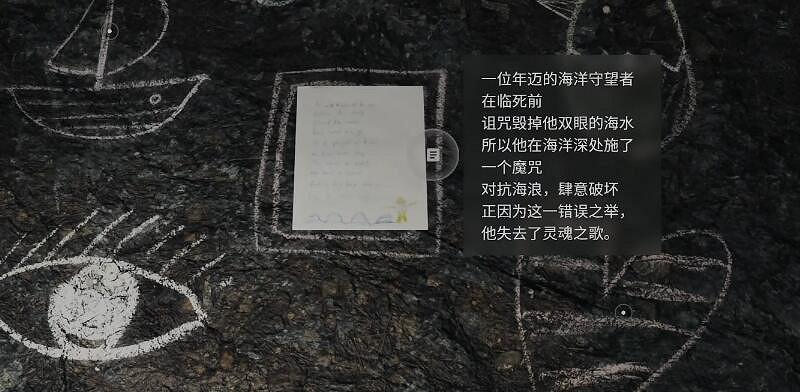 一位年迈的海洋守望者
在临死前
诅咒毁掉他双眼的海水
所以他在海洋深处施了
一个魔咒
对抗海浪，肆意破坏
正因为这一错误之举，
他失去了灵魂之歌。